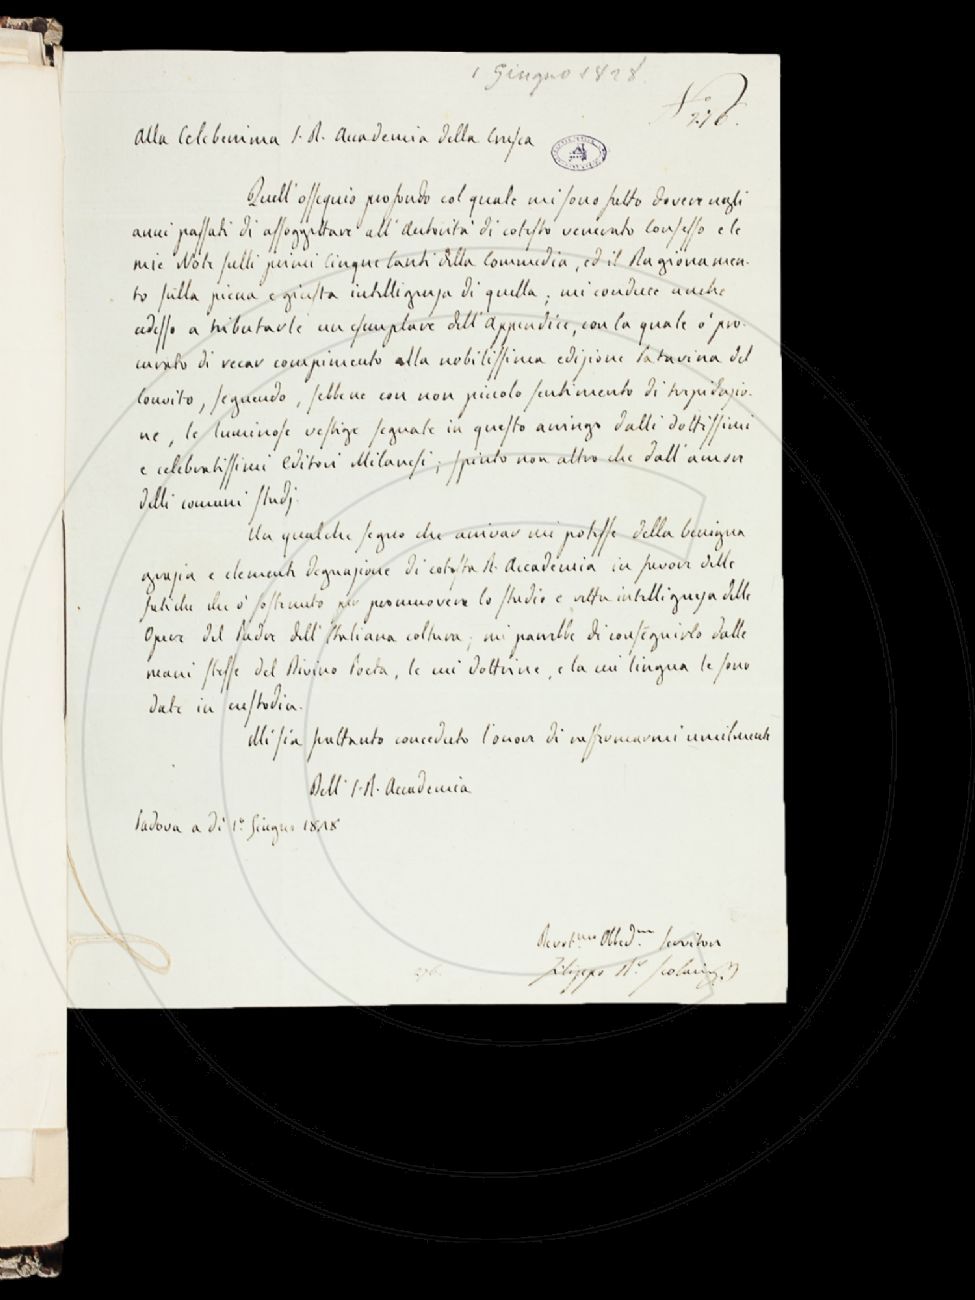 1 Giugno 1828.
N.° 276.
Alla Celeberrima I. R. Accademia della Crusca
Quell' ossequio profondo col quale mi sono fatto dovere negli
anni passati di assoggettare all' Autorità di cotesto venerato Consesso e le
mie Note sulli primi cinque Canti della Commedia, ed il Ragionamen-
to sulla piena e giusta intelligenza di quella, mi conduce anche
adesso a tributarle un esemplare dell' Appendice, con la quale ò pro-
curato di recar compimento alla nobilissima edizione Patavina del
Convito, seguendo, sebbene con non piccolo sentimento di trepidazio-
ne, le luminose vestige segnate in questo aringo dalli dottissimi
e celebratissimi Editori Milanesi; spinto non altro che dall' amor
delli comuni studj.
Un qualche segno che arrivar mi potesse della benigna
grazia e clemente degnazione di cotesta R. Accademia in favore delle
fatiche che ò sostenuto per promuovere lo studio e retta intelligenza delle
Opere del Padre dell' Italiana coltura, mi parrebbe di conseguirlo dalle
mani stesse del Divino Poeta, le cui dottrine, e la cui lingua le sono
date in custodia.
Mi sia frattanto conceduto l'onore di raffermarmi umilmente
Dell' I. R. Accademia
Padova a dì 1.° Giugno 1828
Devot.mo Obbed.mo Servitore
Filippo Scolari
276.